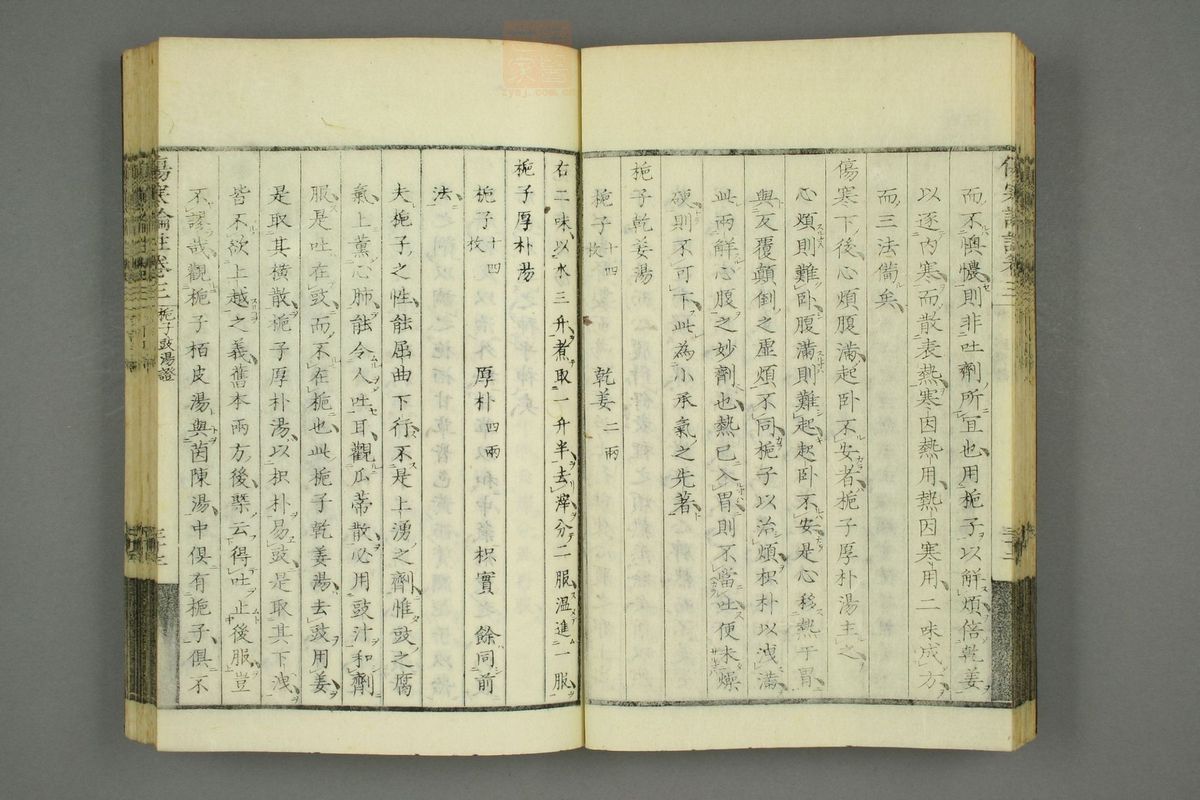 而不懊憹則非吐劑所宜也用梔子以解煩倍乾姜
以逐內寒而散表熱寒因熱用熱因寒用二味成方
而三法備矣
傷寒下後心煩腹滿起卧不安者梔子厚朴湯主之
心煩則難卧腹滿則難起起卧不安是心移熱于胃
與反覆顛倒之虛煩不同梔子以治煩枳朴以洩滿
此兩解心腹之妙劑也熱已入胃則不當吐便未燥
硬則不可下此為小承氣之先著
梔子乾姜湯
梔子 十四枚 乾姜 二兩
右二味以水三升煮取一升半去滓分二服溫進一服
梔子厚朴湯
梔子 十四枚 厚朴 四兩 枳實 餘同前
法
夫梔子之性能屈曲下行不是上湧之劑惟豉之腐
氣上薰心肺能令人吐耳觀瓜蒂散必用豉汁和劑
服是吐在豉而不在梔也此梔子乾姜湯去豉用姜
是取其橫散梔子厚朴湯以枳朴易豉是取其下洩
皆不欲上越之義舊本兩方後槩云得吐止後服豈
不謬哉觀梔子栢皮湯與茵陳湯中俱有梔子俱不
傷寒論註卷三 梔子豉湯證
zysj.com.cn